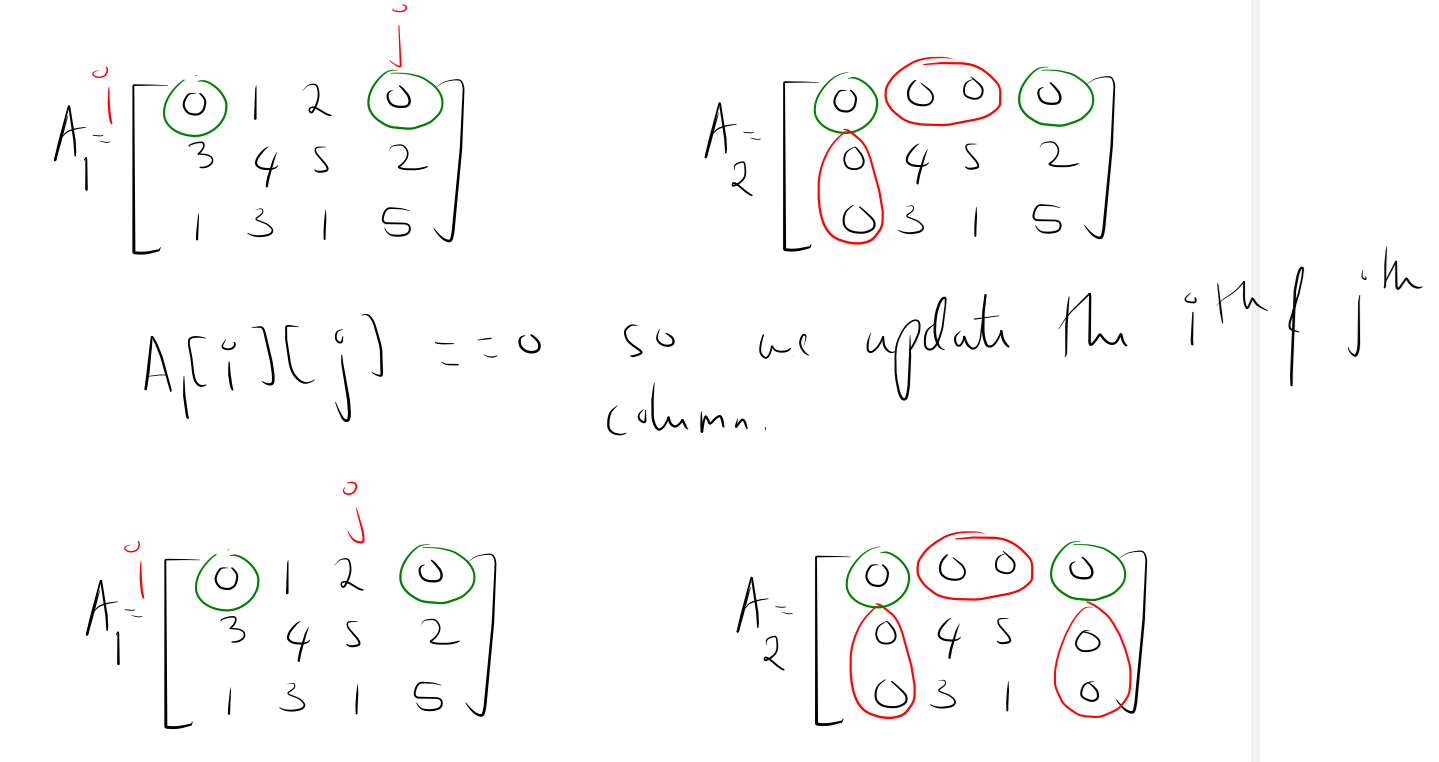 j
i
A₁ = [ 0 1 2 0
3 4 5 2
1 3 1 5 ]
A₂ = [ 0 0 0 0
0 4 5 2
0 3 1 5 ]
A₁[i][j] == 0 so we update the iᵗʰ & jᵗʰ
column.
j
i
A₁ = [ 0 1 2 0
3 4 5 2
1 3 1 5 ]
A₂ = [ 0 0 0 0
0 4 5 0
0 3 1 0 ]